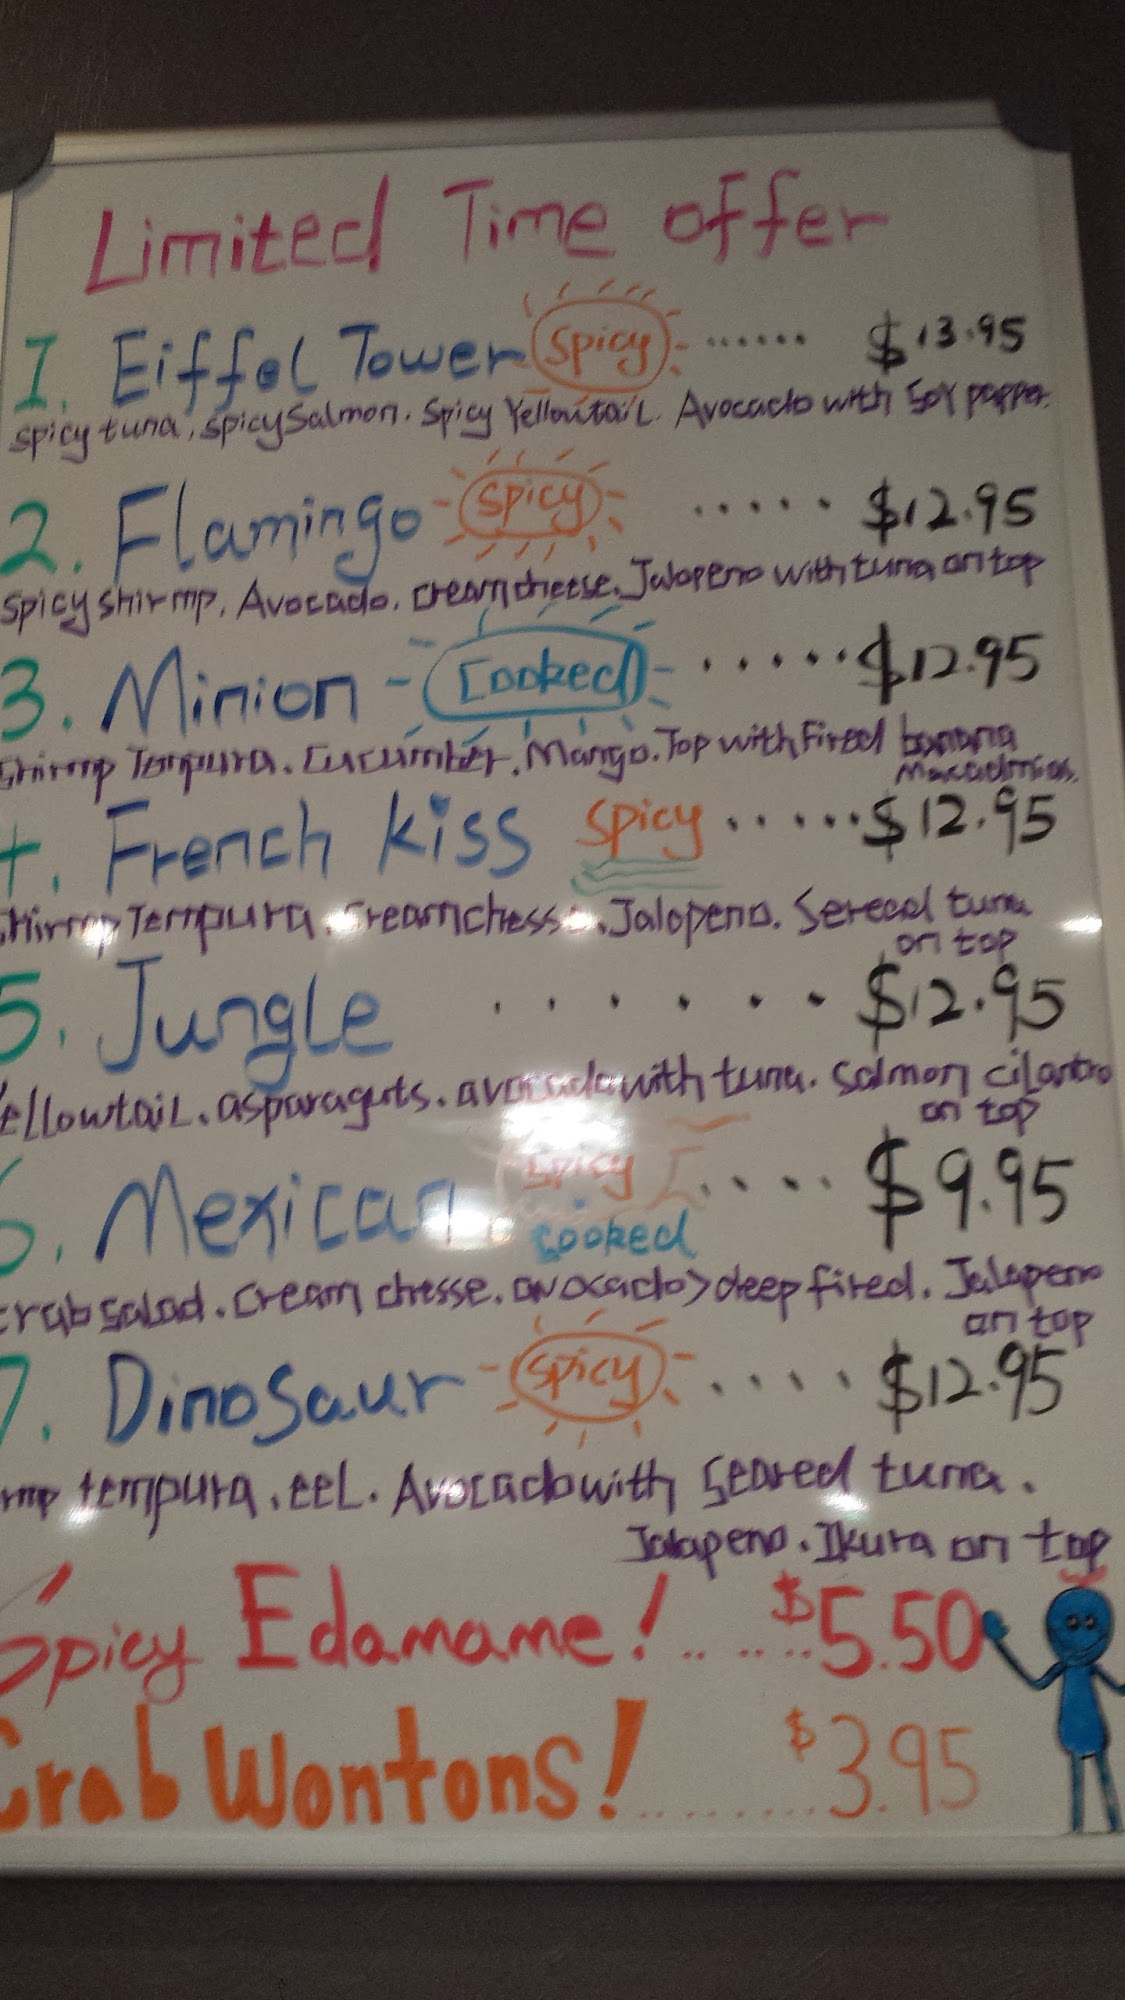 Limited Time offer
1. Eiffel Tower Spicy ...... $13.95
spicy tuna, spicy Salmon. Spicy Yellowtail. Avocado with Soy papper.
2. Flamingo Spicy ..... $12.95
Spicy shirmp. Avocado. creamcheese. Jalapeno with tuna on top
3. Minion Cooked ..... $12.95
Shirmp Tempura. Cucumber. Mango. Top with Fired banana
Macadmias.
4. French kiss Spicy ..... $12.95
Shirmp Tempura. Creamchesse. Jalopeno. Sereed tuna
on top
5. Jungle ...... $12.95
Yellowtail. asparaguts. avocado with tuna. Salmon cilantro
on top
6. Mexican Spicy .... $9.95
cooked
crab salad. cream chesse. avocado > deep fired. Jalapeno
on top
7. Dinosaur Spicy .... $12.95
rmp tempura. eel. Avocado with Seared tuna.
Jalapeno. Ikura on top
Spicy Edamame! ..... $5.50
Crab Wontons! ......... $3.95